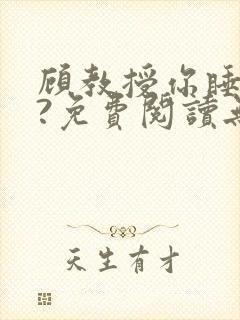 顾教授你睡
?免費閱讀無
天生有才